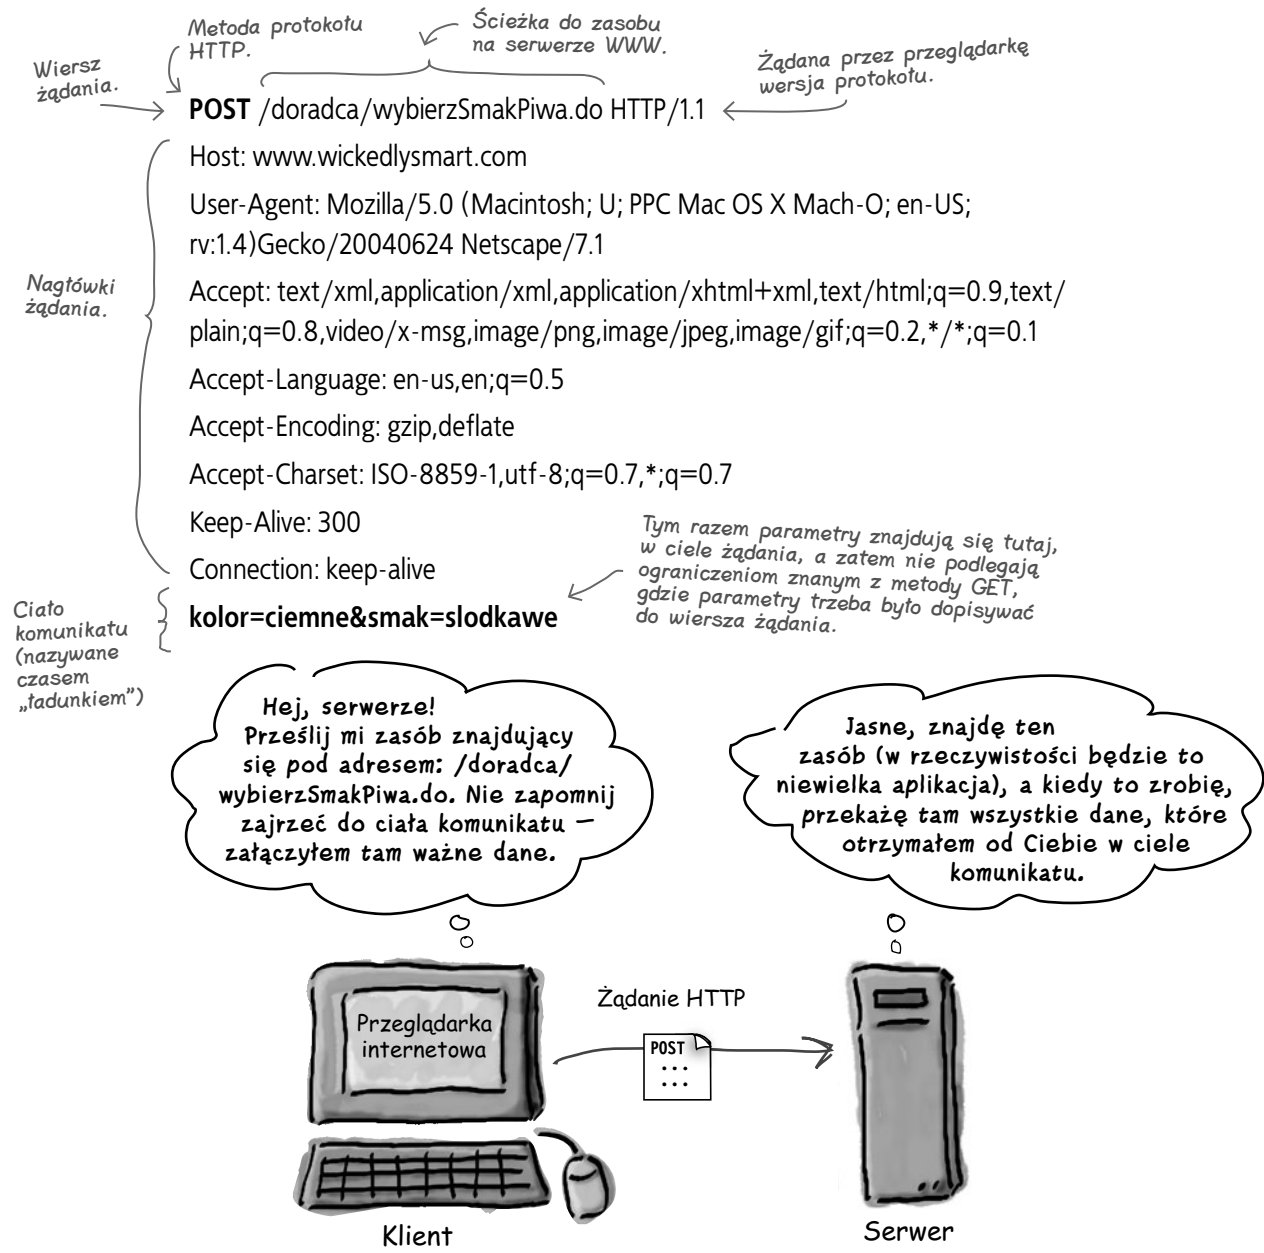 Metoda protokołu
HTTP.
Ścieżka do zasobu
na serwerze WWW.
Wiersz
żądania.
Żądana przez przeglądarkę
wersja protokołu.
POST /doradca/wybierzSmakPiwa.do HTTP/1.1
Host: www.wickedlysmart.com
User-Agent: Mozilla/5.0 (Macintosh; U; PPC Mac OS X Mach-O; en-US;
rv:1.4)Gecko/20040624 Netscape/7.1
Nagłówki
żądania.
Accept: text/xml,application/xml,application/xhtml+xml,text/html;q=0.9,text/
plain;q=0.8,video/x-msg,image/png,image/jpeg,image/gif;q=0.2,*/*;q=0.1
Accept-Language: en-us,en;q=0.5
Accept-Encoding: gzip,deflate
Accept-Charset: ISO-8859-1,utf-8;q=0.7,*;q=0.7
Keep-Alive: 300
Connection: keep-alive
Tym razem parametry znajdują się tutaj,
w ciele żądania, a zatem nie podlegają
ograniczeniom znanym z metody GET,
gdzie parametry trzeba było dopisywać
do wiersza żądania.
Ciało
komunikatu
(nazywane
czasem
„ładunkiem”)
kolor=ciemne&smak=slodkawe
Hej, serwerze!
Prześlij mi zasób znajdujący
się pod adresem: /doradca/
wybierzSmakPiwa.do. Nie zapomnij
zajrzeć do ciała komunikatu –
załączyłem tam ważne dane.
Jasne, znajdę ten
zasób (w rzeczywistości będzie to
niewielka aplikacja), a kiedy to zrobię,
przekażę tam wszystkie dane, które
otrzymałem od Ciebie w ciele
komunikatu.
Przeglądarka
internetowa
Żądanie HTTP
POST
...
...
Klient
Serwer